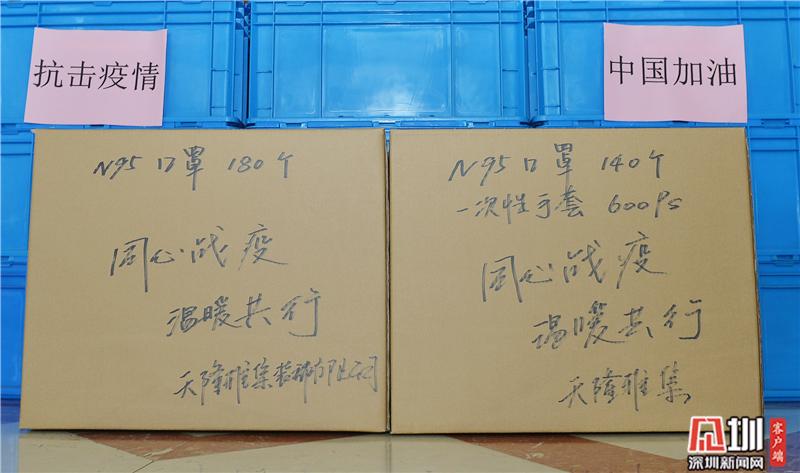 抗击疫情
中国加油
N95 口罩 180个
同心战疫
温暖共行
天隆雅集装饰有限公司
N95 口罩 140个
一次性手套 600Ps
同心战疫
温暖共行
天隆雅集
深圳新闻网
客户端